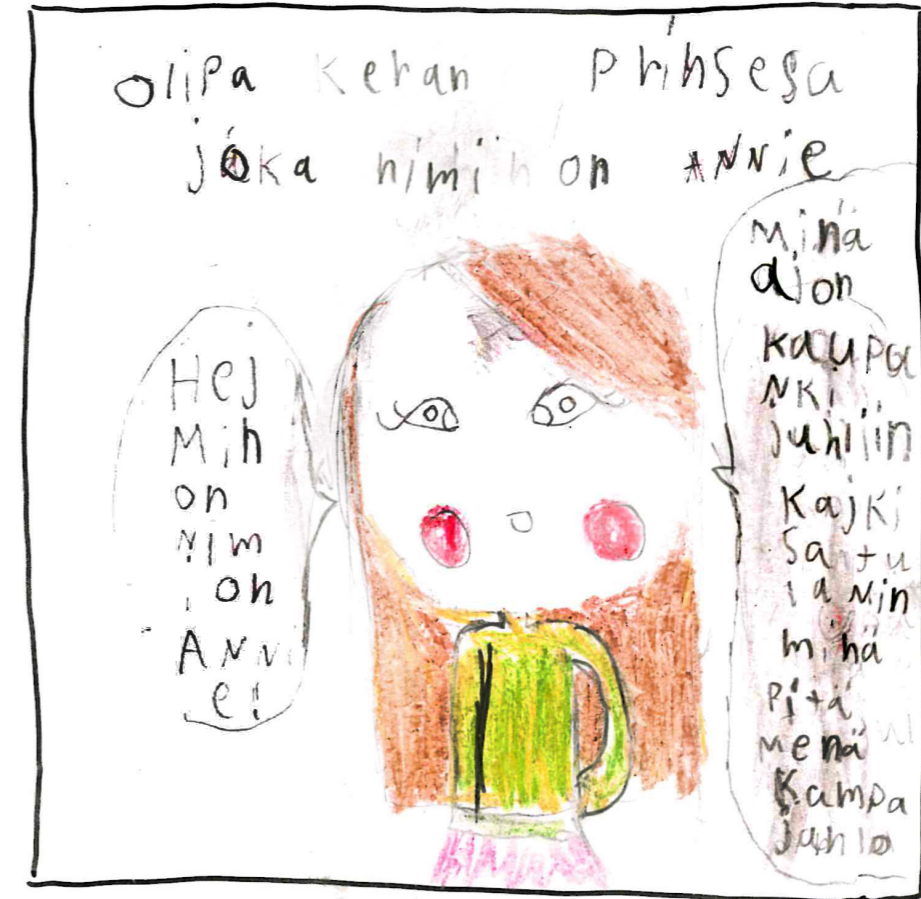 olipa keran prinsesa
joka nimiin on ANNie
Hej
Min
on
nim
i on
ANN
e!
Minä
aion
kaupa
nki
juhliin
kajki
Sa tu
minä
pitä
menä
kampa